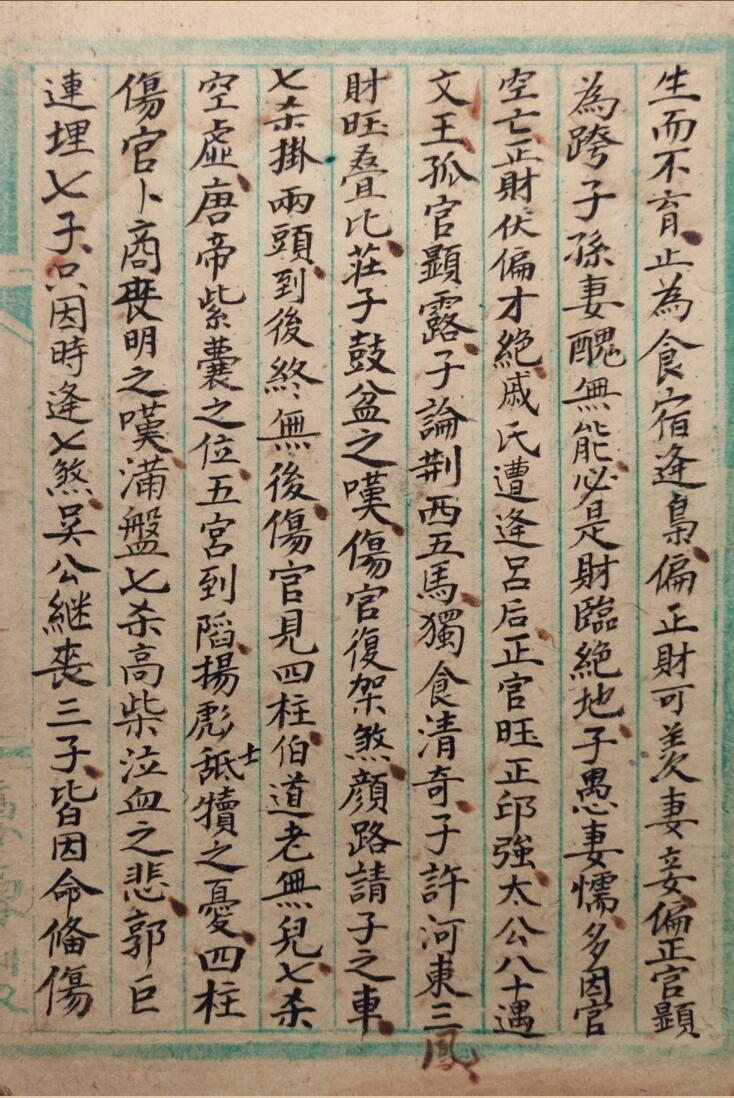 生而不育止為食宿逢梟偏正財可羨妻妾偏正官顯
為跨子孫妻醜無能必是財臨絕地子愚妻懦多因官
空亡正財伏偏才絕戚氏遭逢呂后正官旺正印強太公八十遇
文王孤官顯露子論荆西五馬獨食清奇子許河東三鳳
財旺疊比莊子鼓盆之嘆傷官復架煞顔路請子之車
七杀掛兩頭到後終無後傷官見四柱伯道老無兒七杀
空虛唐帝紫囊之位五宮到陷揚彪舐士犢之憂四柱
傷官卜商喪明之嘆滿盤七杀高柴泣血之悲郭巨
連埋七子只因時逢七煞吴公継喪三子皆因命偹傷